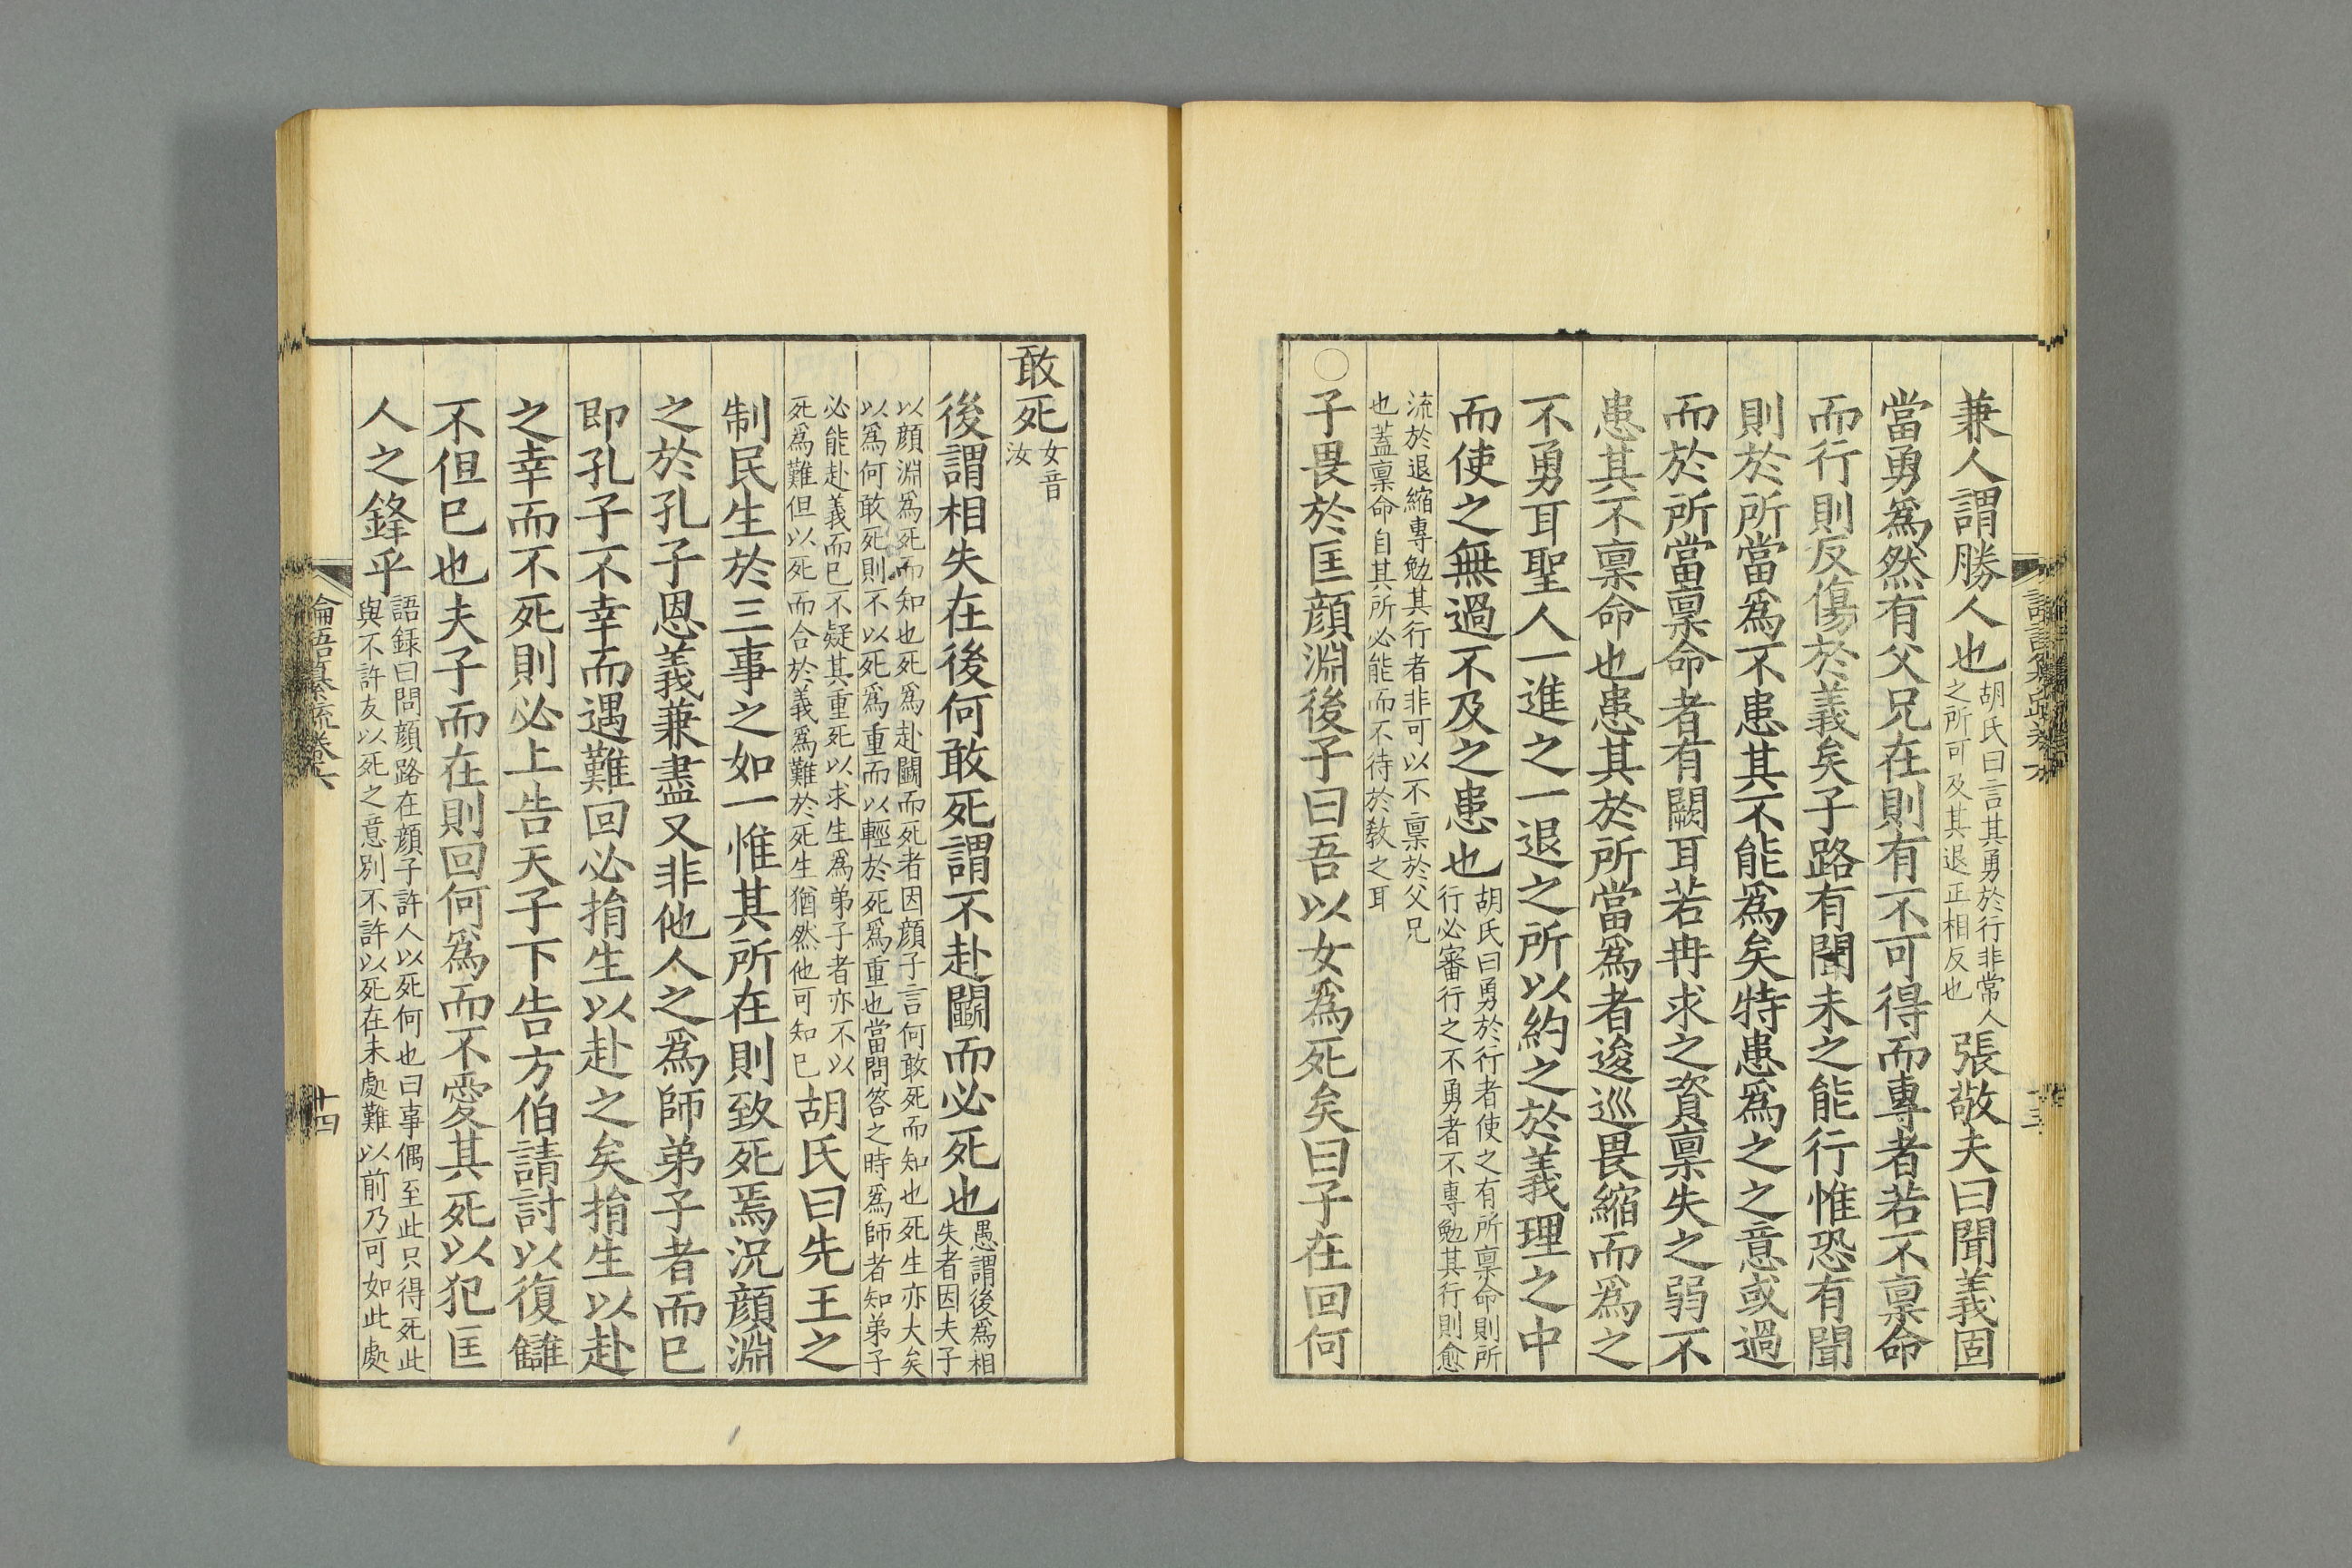 兼人謂勝人也胡氏曰言其勇於行非常人之所可及其退正相反也張敬夫曰聞義固
當勇爲然有父兄在則有不可得而專者若不禀命
而行則反傷於義矣子路有聞未之能行惟恐有聞
則於所當爲不患其不能爲矣特患爲之之意或過
而於所當禀命者有闕耳若冉求之資禀失之弱不
患其不禀命也患其於所當爲者逡巡畏縮而爲之
不勇耳聖人一進之一退之所以約之於義理之中
而使之無過不及之患也胡氏曰勇於行者使之有所禀命則所行必審行之不勇者不專勉其行則愈
流於退縮專勉其行者非可以不禀於父兄也蓋禀命自其所必能而不待於敎之耳
○子畏於匡顔淵後子曰吾以女爲死矣曰子在回何
敢死女音汝
後謂相失在後何敢死謂不赴鬬而必死也愚謂後爲相失者因夫子
以顔淵爲死而知也死爲赴鬬而死者因顔子言何敢死而知也死生亦大矣以爲何敢死則不以死爲重而以輕於死爲重也當問答之時爲師者知弟子
必能赴義而已不疑其重死以求生爲弟子者亦不以死爲難但以死而合於義爲難於死生猶然他可知已胡氏曰先王之
制民生於三事之如一惟其所在則致死焉況顔淵
之於孔子恩義兼盡又非他人之爲師弟子者而已
即孔子不幸而遇難回必捐生以赴之矣捐生以赴
之幸而不死則必上告天子下告方伯請討以復讎
不但已也夫子而在則回何爲而不愛其死以犯匡
人之鋒乎語録曰問顔路在顔子許人以死何也曰事偶至此只得死此與不許友以死之意别不許以死在未處難以前乃可如此處
論語纂疏卷六
十四